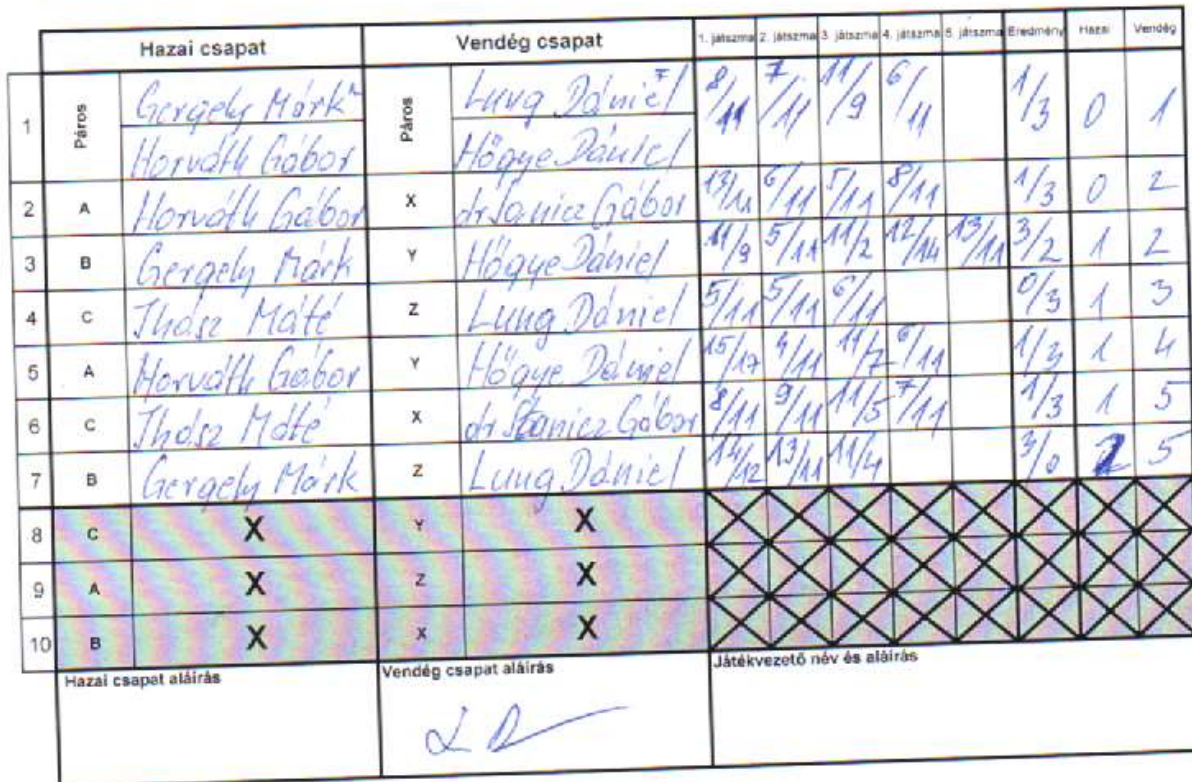 Hazai csapat Vendég csapat 1. játszma 2. játszma 3. játszma 4. játszma 5. játszma Eredmény Hazai Vendég
1 Páros Gergely Márk Páros Lung Dániel 8/11 7/11 11/9 6/11 1/3 0 1
Horváth Gábor Hőgye Dániel
2 A Horváth Gábor X dr Stanicz Gábor 13/11 6/11 5/11 8/11 1/3 0 2
3 B Gergely Márk Y Hőgye Dániel 11/9 5/11 11/2 12/14 13/11 3/2 1 2
4 C Ihász Máté Z Lung Dániel 5/11 5/11 6/11 0/3 1 3
5 A Horváth Gábor Y Hőgye Dániel 15/17 4/11 11/7 6/11 1/3 1 4
6 C Ihász Máté X dr Stanicz Gábor 8/11 9/11 11/5 7/11 1/3 1 5
7 B Gergely Márk Z Lung Dániel 14/12 13/11 11/4 3/0 2 5
8 C X Y X
9 A X Z X
10 B X X X
Hazai csapat aláírás Vendég csapat aláírás Játékvezető név és aláírás